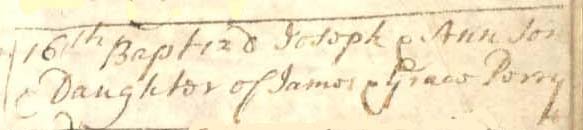 16th Baptizd Joseph & Ann Son
& Daughter of James & Grace Perry